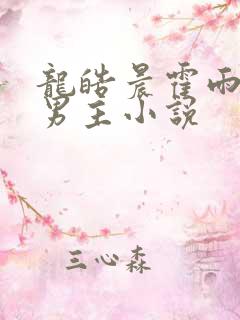 龍皓晨霍雨
男主小說
三心森